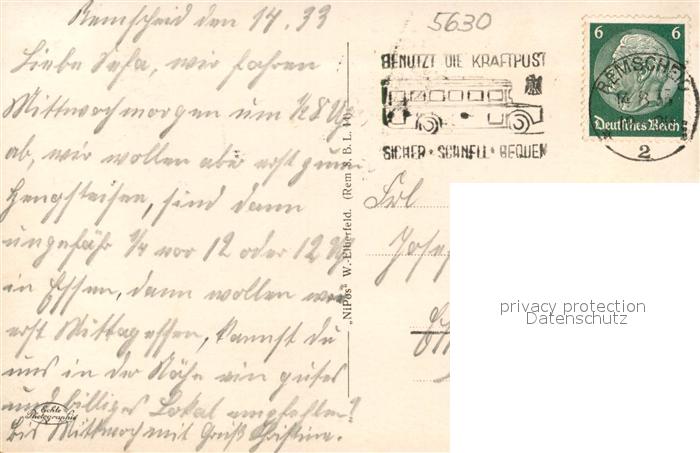 Remscheid den 14. 33
Liebe Sefa, wir fahren
Mittwochmorgen um ½8 Uhr
ab, wir wollen aber erst zum
Hengsteisen, sind dann
ungefähr ¼ vor 12 oder 12 Uhr
in Essen, dann wollen wir
erst Mittagessen, kannst du
uns in der Nähe ein gutes
und billiges Lokal empfehlen?
Bis Mittwoch mit Gruß Christine.
Echte
Photographie
„NIPos" W.-Elberfeld. (Rem S.B.L. 14)
5630
BENUTZT DIE KRAFTPOST
SICHER · SCHNELL · BEQUEM
REMSCHEID
2
6 6
Deutsches Reich
Frl
Josef
privacy protection
Datenschutz